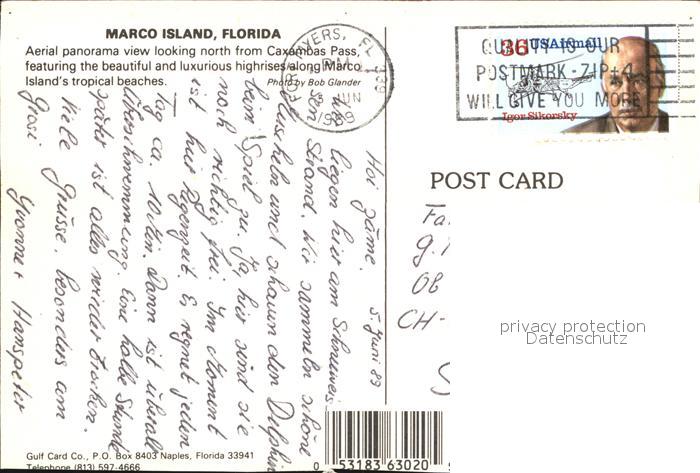 MARCO ISLAND, FLORIDA
Aerial panorama view looking north from Caxambas Pass,
featuring the beautiful and luxurious highrises along Marco
Island's tropical beaches.
Photo by Bob Glander
MYERS, FL 339
PM
JUN
1989
OUR
POSTMARK - ZIP+4
WILL GIVE YOU MORE
36 USAirmail
Igor Sikorsky
POST CARD
5. Juni 89
Hoi zäme.
liegen hier am Schneeweis-
sen Strand. Wir sammeln schöne
Muscheln und schauen den Delphin
beim Spiel zu. Ja, hier sind sie
noch richtig frei. Im Moment
ist hier Regenzeit. Es regnet jeden
Tag ca. 10 Min. Dann ist überall
Überschwemmung. Eine halbe Stunde
später ist alles wieder trocken.
Viele Grüsse, besonders am
Grosi
Yvonne + Hanspeter
Fa
g.
OB
CH-
S
privacy protection
Datenschutz
Gulf Card Co., P.O. Box 8403 Naples, Florida 33941
Telephone (813) 597-4666
0 53183 63020